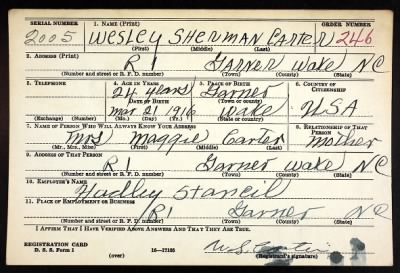 SERIAL NUMBER 1. NAME (Print) ORDER NUMBER
2005 Wesley Sherman Carter 246
(First) (Middle) (Last)
2. ADDRESS (Print)
R1 Garner Wake NC
(Number and street or R. F. D. number) (Town) (County) (State)
3. TELEPHONE 4. AGE IN YEARS 5. PLACE OF BIRTH 6. COUNTRY OF CITIZENSHIP
24 years Garner
DATE OF BIRTH (Town or county)
Mar 21 1916 Wake USA
(Exchange) (Number) (Mo.) (Day) (Yr.) (State or country)
7. NAME OF PERSON WHO WILL ALWAYS KNOW YOUR ADDRESS 8. RELATIONSHIP OF THAT PERSON
Mrs Maggie Carter Mother
(Mr., Mrs., Miss) (First) (Middle) (Last)
9. ADDRESS OF THAT PERSON
R1 Garner Wake NC
(Number and street or R. F. D. number) (Town) (County) (State)
10. EMPLOYER'S NAME
Hadley Stancil
11. PLACE OF EMPLOYMENT OR BUSINESS
R1 Garner NC
(Number and street or R. F. D. number) (Town) (County) (State)
I AFFIRM THAT I HAVE VERIFIED ABOVE ANSWERS AND THAT THEY ARE TRUE.
REGISTRATION CARD
D. S. S. Form 1 (over) 16—17105 (Registrant's signature)